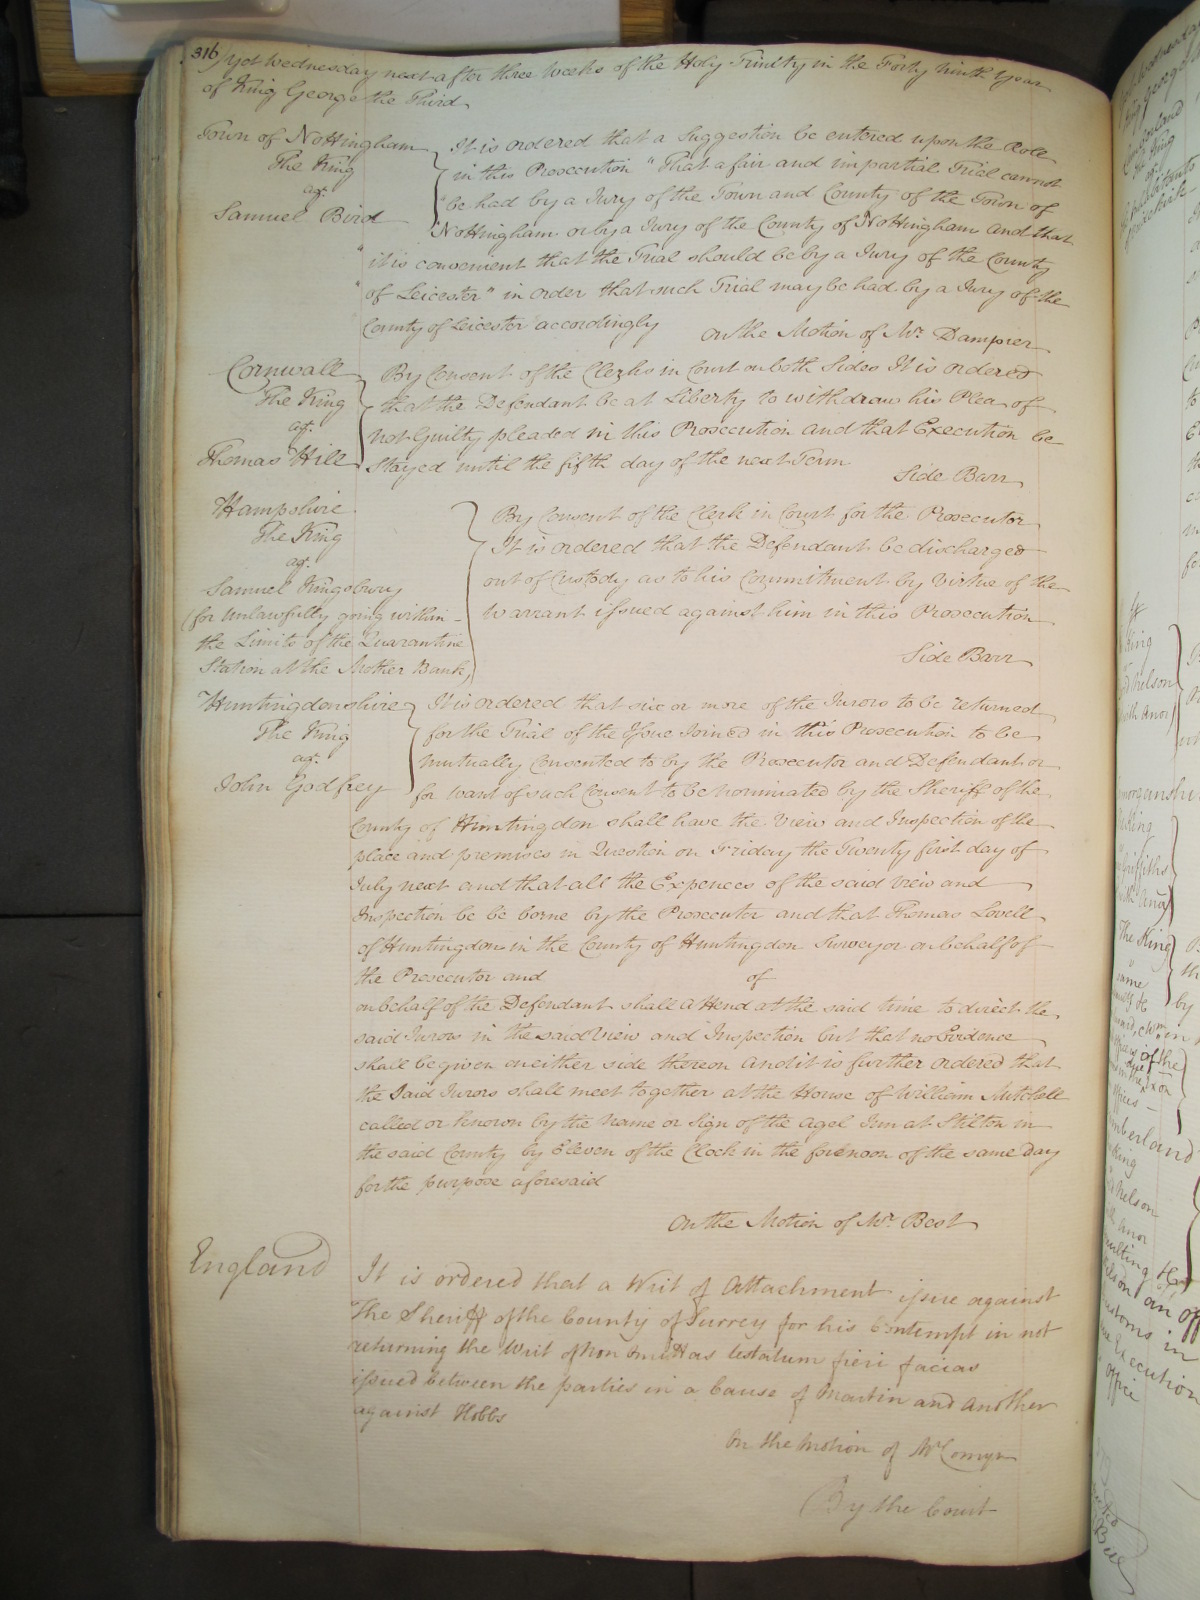 316
yet Wednesday next after three Weeks of the Holy Trinity in the Forty ninth Year
of King George the Third
Town of Nottingham
The King
agt.
Samuel Bird
It is ordered that a Suggestion be entered upon the Role
in this Prosecution "That a fair and impartial Trial cannot
"be had by a Jury of the Town and County of the Town of
"Nottingham or by a Jury of the County of Nottingham and that
"it is convenient that the Trial should be by a Jury of the County
"of Leicester" in order that such Trial may be had by a Jury of the
County of Leicester accordingly
On the Motion of Mr. Dampier
Cornwall
The King
agt.
Thomas Hill
By Consent of the Clerks in Court on both Sides It is ordered
that the Defendant be at Liberty to withdraw his Plea of
not Guilty pleaded in this Prosecution and that Execution be
stayed until the fifth day of the next Term
Side Barr
Hampshire
The King
agt.
Samuel Kingsbury
(for Unlawfully going within
the Limits of the Quarantine
Station at the Mother Bank)
By Consent of the Clerk in Court for the Prosecutor
It is ordered that the Defendant be discharged
out of Custody as to his Commitment by Virtue of the
Warrant issued against him in this Prosecution
Side Barr
Huntingdonshire
The King
agt.
John Godfrey
It is ordered that six or more of the Jurors to be returned
for the Trial of the Issue Joined in this Prosecution to be
mutually Consented to by the Prosecutor and Defendant or
for want of such Consent to be nominated by the Sheriff of the
County of Huntingdon shall have the View and Inspection of the
place and premises in Question on Friday the Twenty first day of
July next and that all the Expences of the said View and
Inspection be be borne by the Prosecutor and that Thomas Lovell
of Huntingdon in the County of Huntingdon Surveyor on behalf of
the Prosecutor and of
on behalf of the Defendant shall attend at the said time to direct the
said Jurors in the said View and Inspection but that no Evidence
shall be given on either side thereon and it is further ordered that
the Said Jurors shall meet together at the House of William Mitchell
called or known by the name or Sign of the Agel Inn at Stilton in
the said County by Eleven of the Clock in the forenoon of the same Day
for the purpose aforesaid
On the Motion of Mr. Best
England
It is ordered that a Writ of Attachment issue against
The Sheriff of the County of Surrey for his Contempt in not
returning the Writ of Non Omittas testatum fieri facias
issued between the parties in a Cause of Martin and Another
against Hobbs
On the Motion of Mr Comyn
By the Court